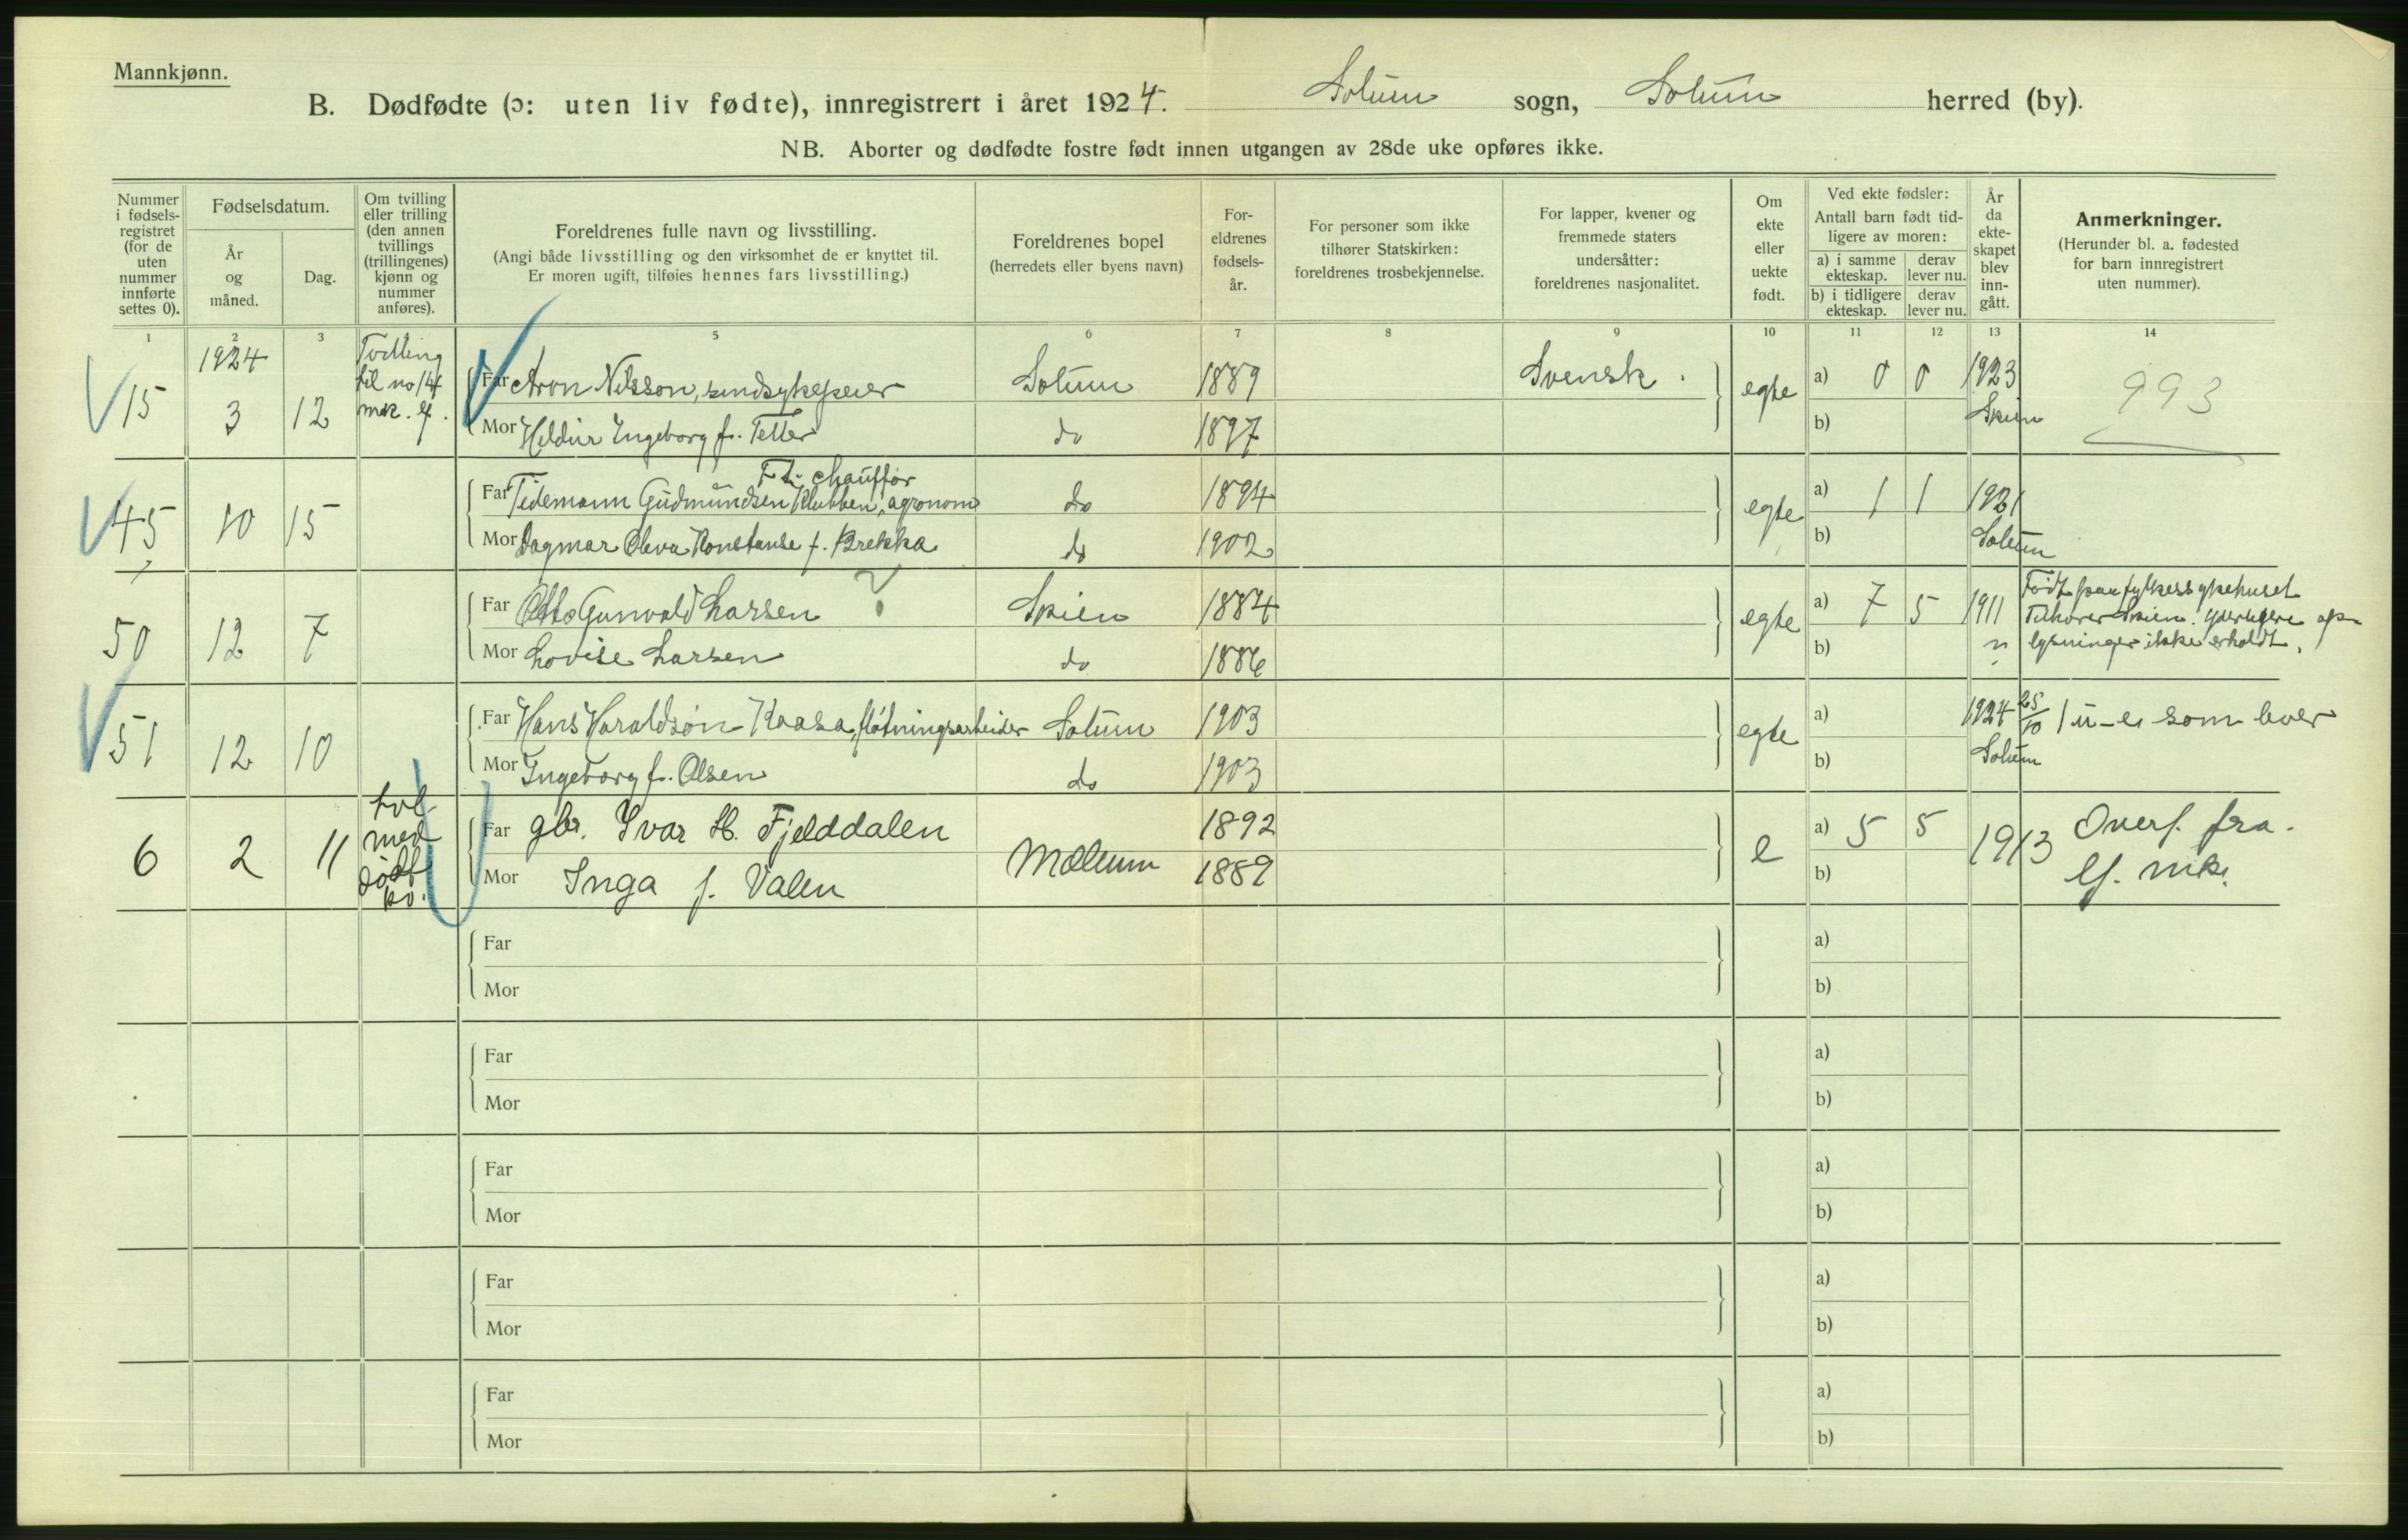 Mannkjønn.
B. Dødfødte (ɔ: uten liv fødte), innregistrert i året 1924. Solum sogn, Solum herred (by).
NB. Aborter og dødfødte fostre født innen utgangen av 28de uke opføres ikke.
Nummer i fødselsregistret (for de uten nummer innførte settes 0).
Fødselsdatum.
År og måned.
Dag.
Om tvilling eller trilling (den annen tvillings (trillingenes) kjønn og nummer anføres).
Foreldrenes fulle navn og livsstilling.
(Angi både livsstilling og den virksomhet de er knyttet til.
Er moren ugift, tilføies hennes fars livsstilling.)
Foreldrenes bopel
(herredets eller byens navn)
Foreldrenes fødselsår.
For personer som ikke tilhører Statskirken: foreldrenes trosbekjennelse.
For lapper, kvener og fremmede staters undersåtter: foreldrenes nasjonalitet.
Om ekte eller uekte født.
Ved ekte fødsler:
Antall barn født tidligere av moren:
a) i samme ekteskap. derav lever nu.
b) i tidligere ekteskap. derav lever nu.
År da ekteskapet blev inngått.
Anmerkninger.
(Herunder bl. a. fødested for barn innregistrert uten nummer).
1 2 3 5 6 7 8 9 10 11 12 13 14
1924
15 3 12 Tvilling til no 14 mk. lf.
Far Aron Nilsson, sindsykepleier Solum 1889 Svensk. egte a) 0 0 1923 Skien 993
Mor Hildur Ingeborg f. Teller do 1897 b)
45 10 15
F. t. chauffør
Far Tidemann Gudmundsen Klubben, agronom do 1894 egte a) 1 1 1921 Solum
Mor Dagmar Oleva Konstanse f. Brekka do 1902 b)
50 12 7
Far Otto Gunvald Larsen ? Skien 1884 egte a) 7 5 1911
Mor Lovise Larsen do 1886 b) "
Født paa fylkessykehuset
Tilhører Skien. Yderligere op-
lysninger ikke erholdt.
51 12 10
Far Hans Haraldsøn Kaasa, fløtningsarbeider Solum 1903 egte a) 1924 25/10 Solum 1 u-e. som lever
Mor Ingeborg f. Olsen do 1903 b)
6 2 11 tvl. med dødf. kv.
Far gbr. Ivar H. Fjelddalen Mælum 1892 e a) 5 5 1913 Overf. fra
Mor Inga f. Valen 1889 b) lf. mk.
Far a)
Mor b)
Far a)
Mor b)
Far a)
Mor b)
Far a)
Mor b)
Far a)
Mor b)